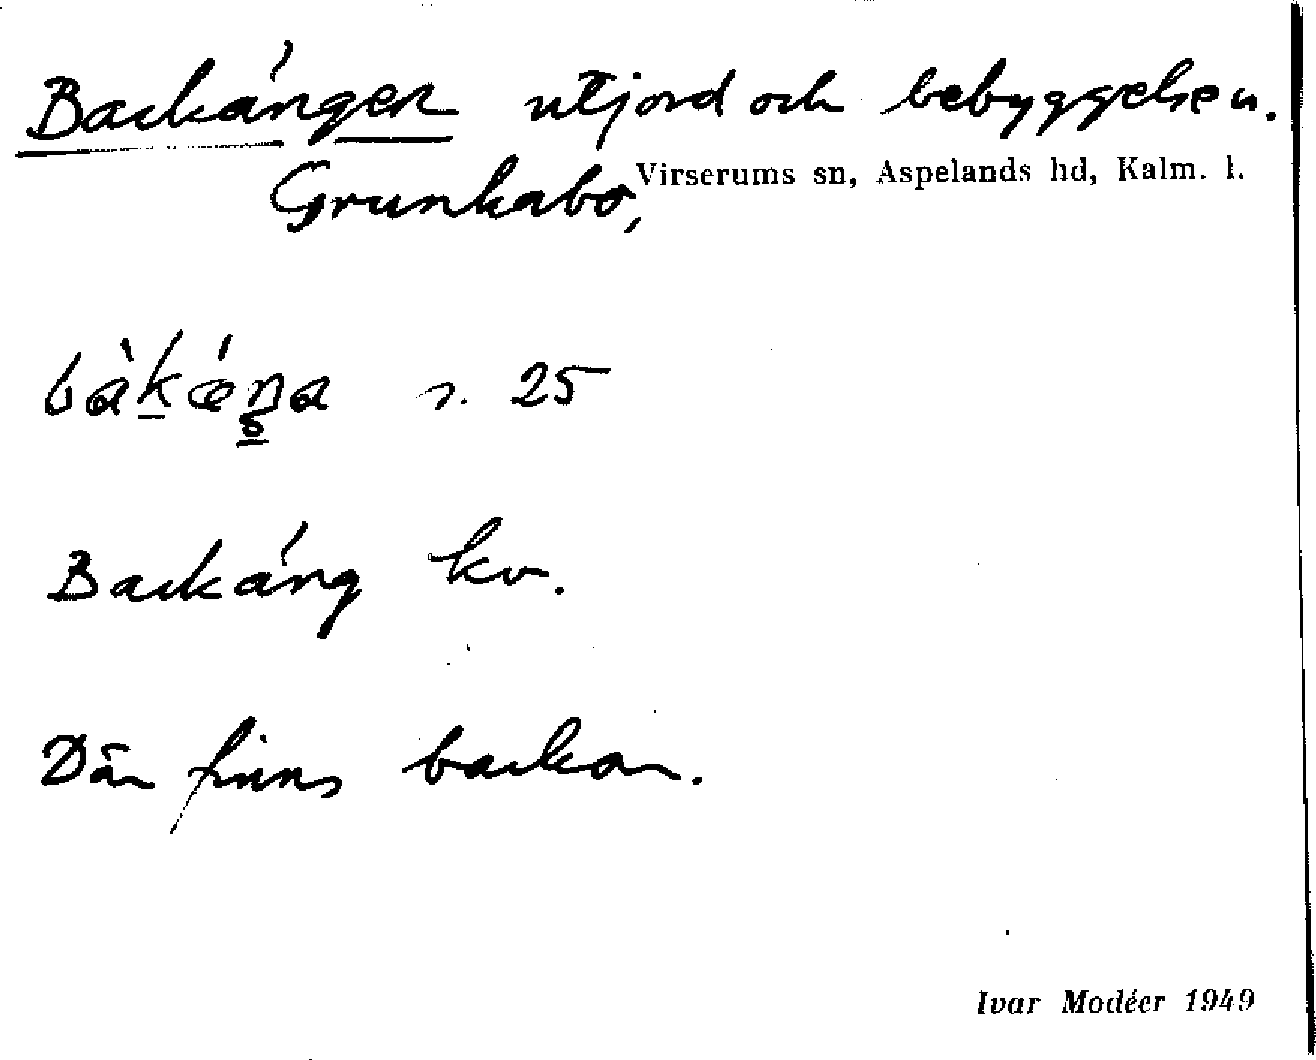 Backängen utjord och bebyggelsen.
Grunkabo, Virserums sn, Aspelands hd, Kalm. l.
bàkǽŋa r. 25
Backäng kv.
Där finns backar.
Ivar Modéer 1949